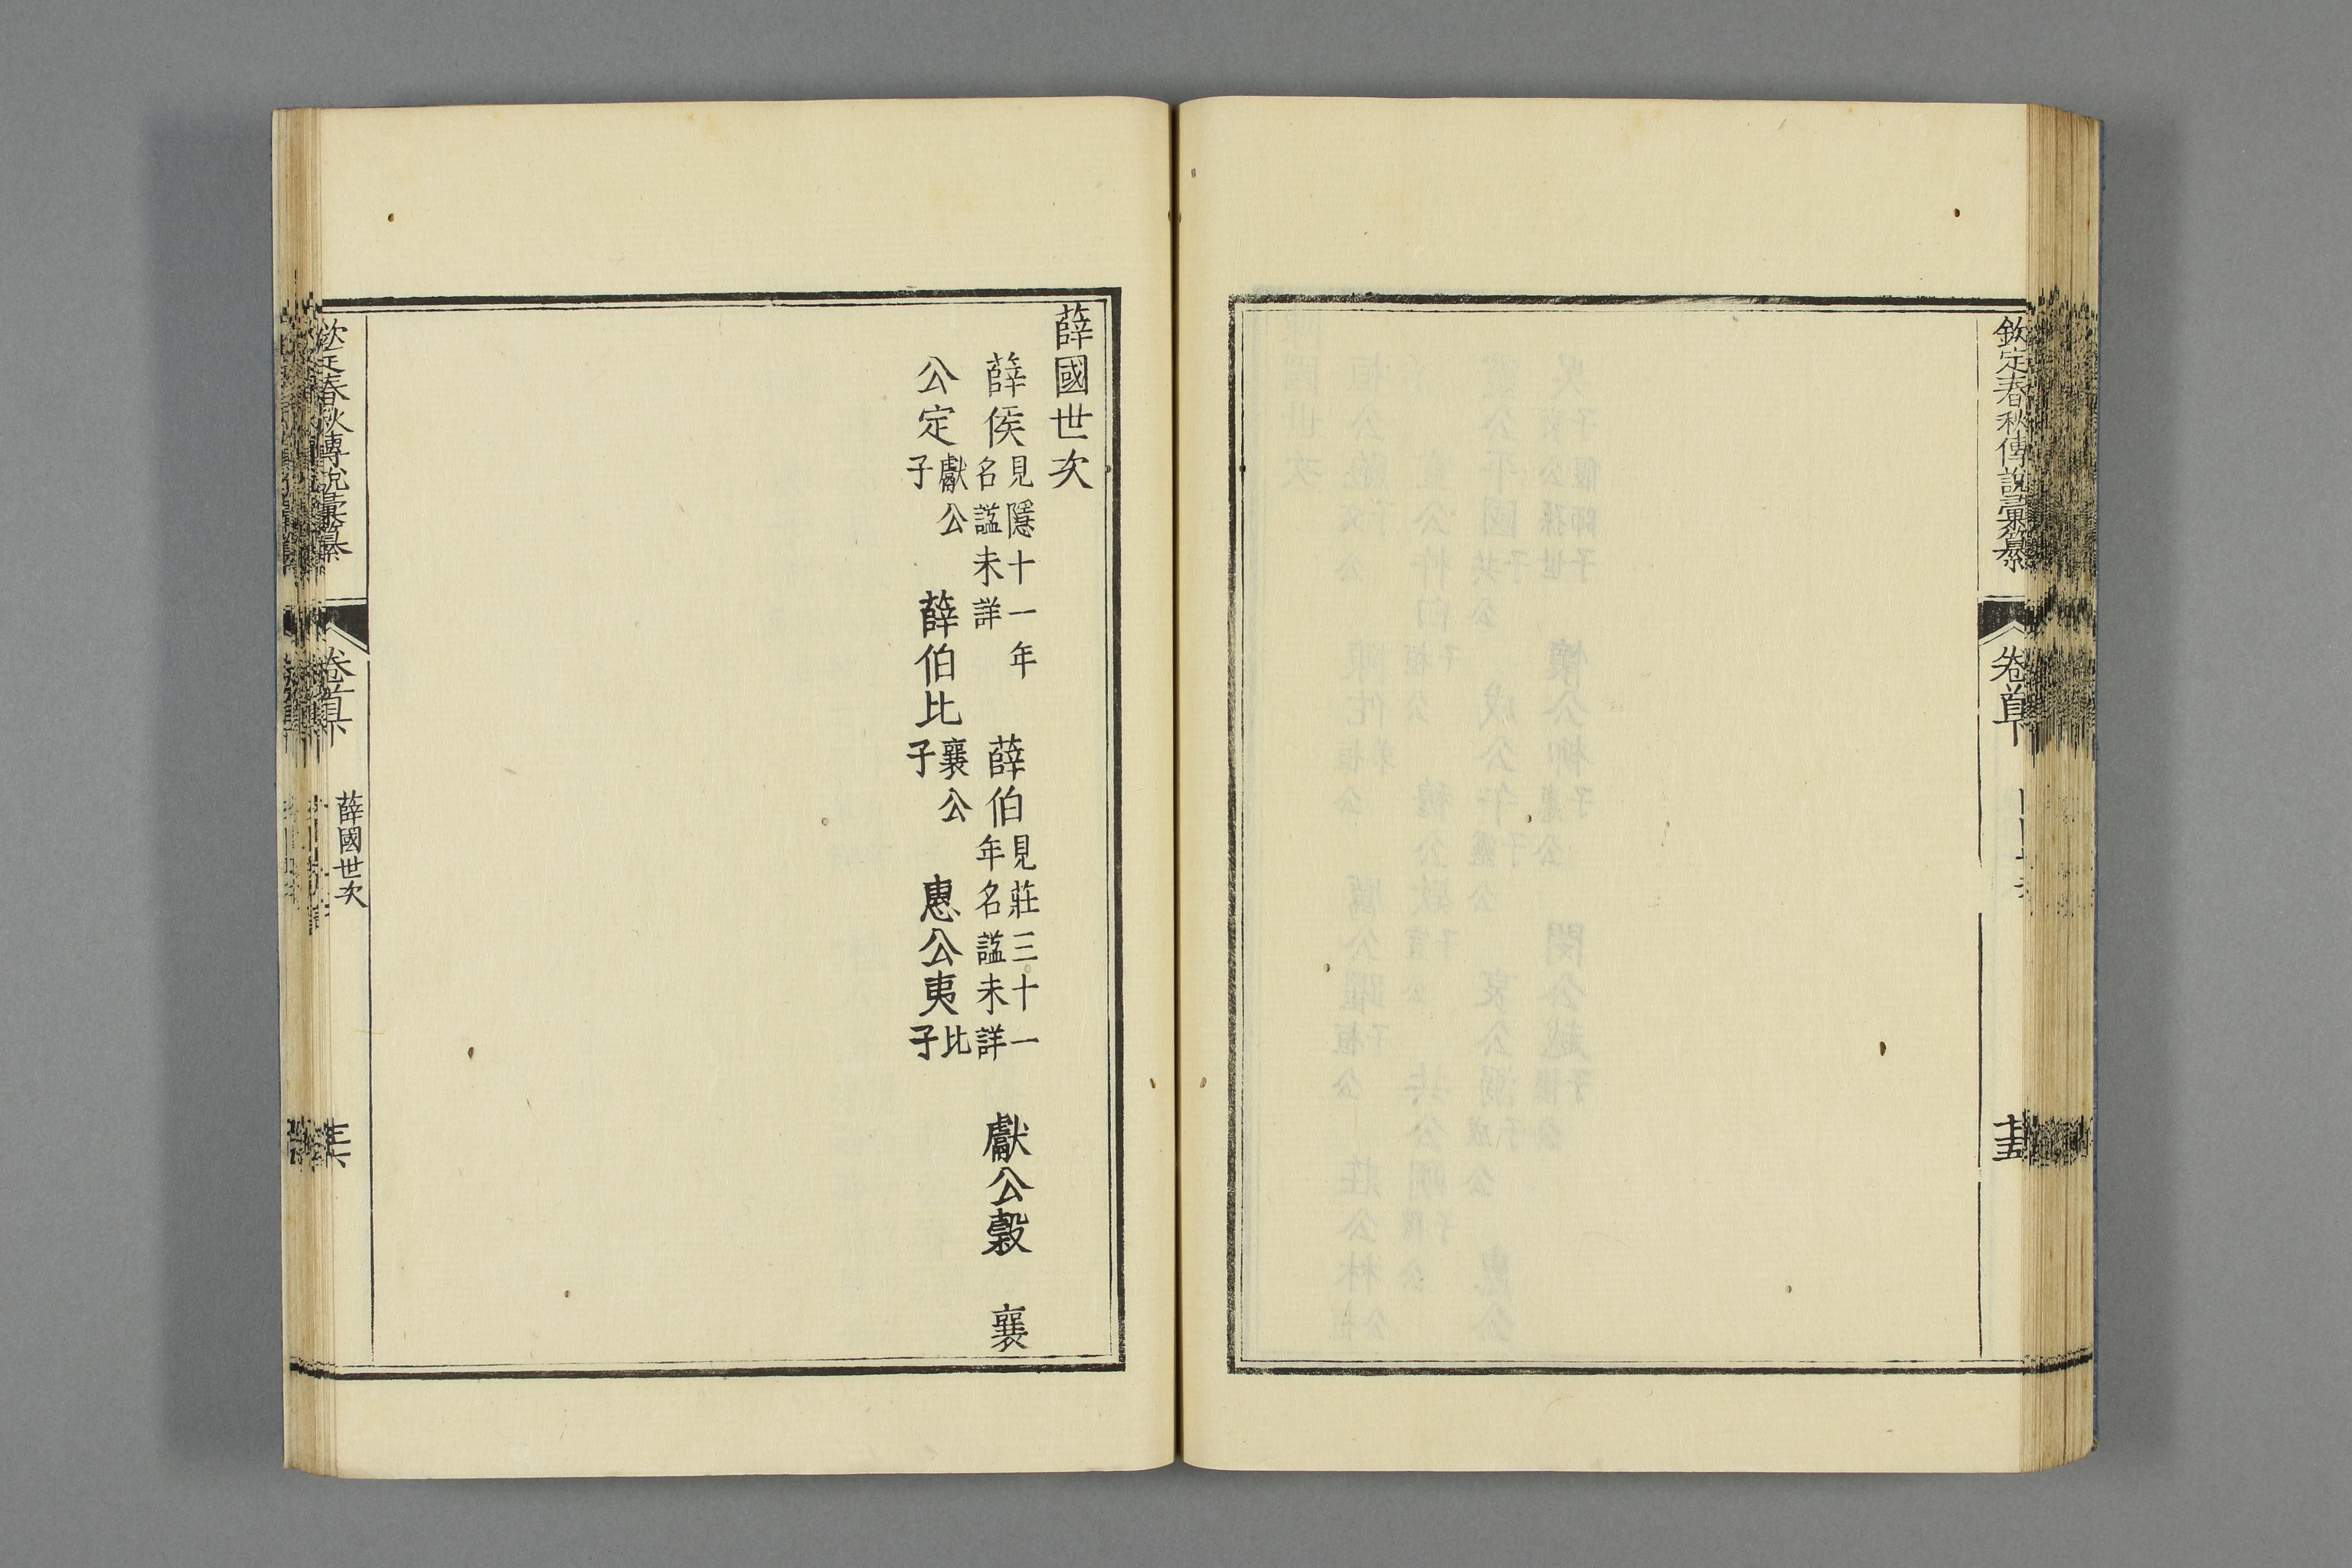 欽定春秋傳說彙纂
卷首下
十五
薛國世次
薛侯見隱十一年名諡未詳　薛伯見莊三十一年名諡未詳　獻公穀　襄
公定獻公子　薛伯比襄公子　惠公夷比子
欽定春秋傳說彙纂
卷首下
薛國世次